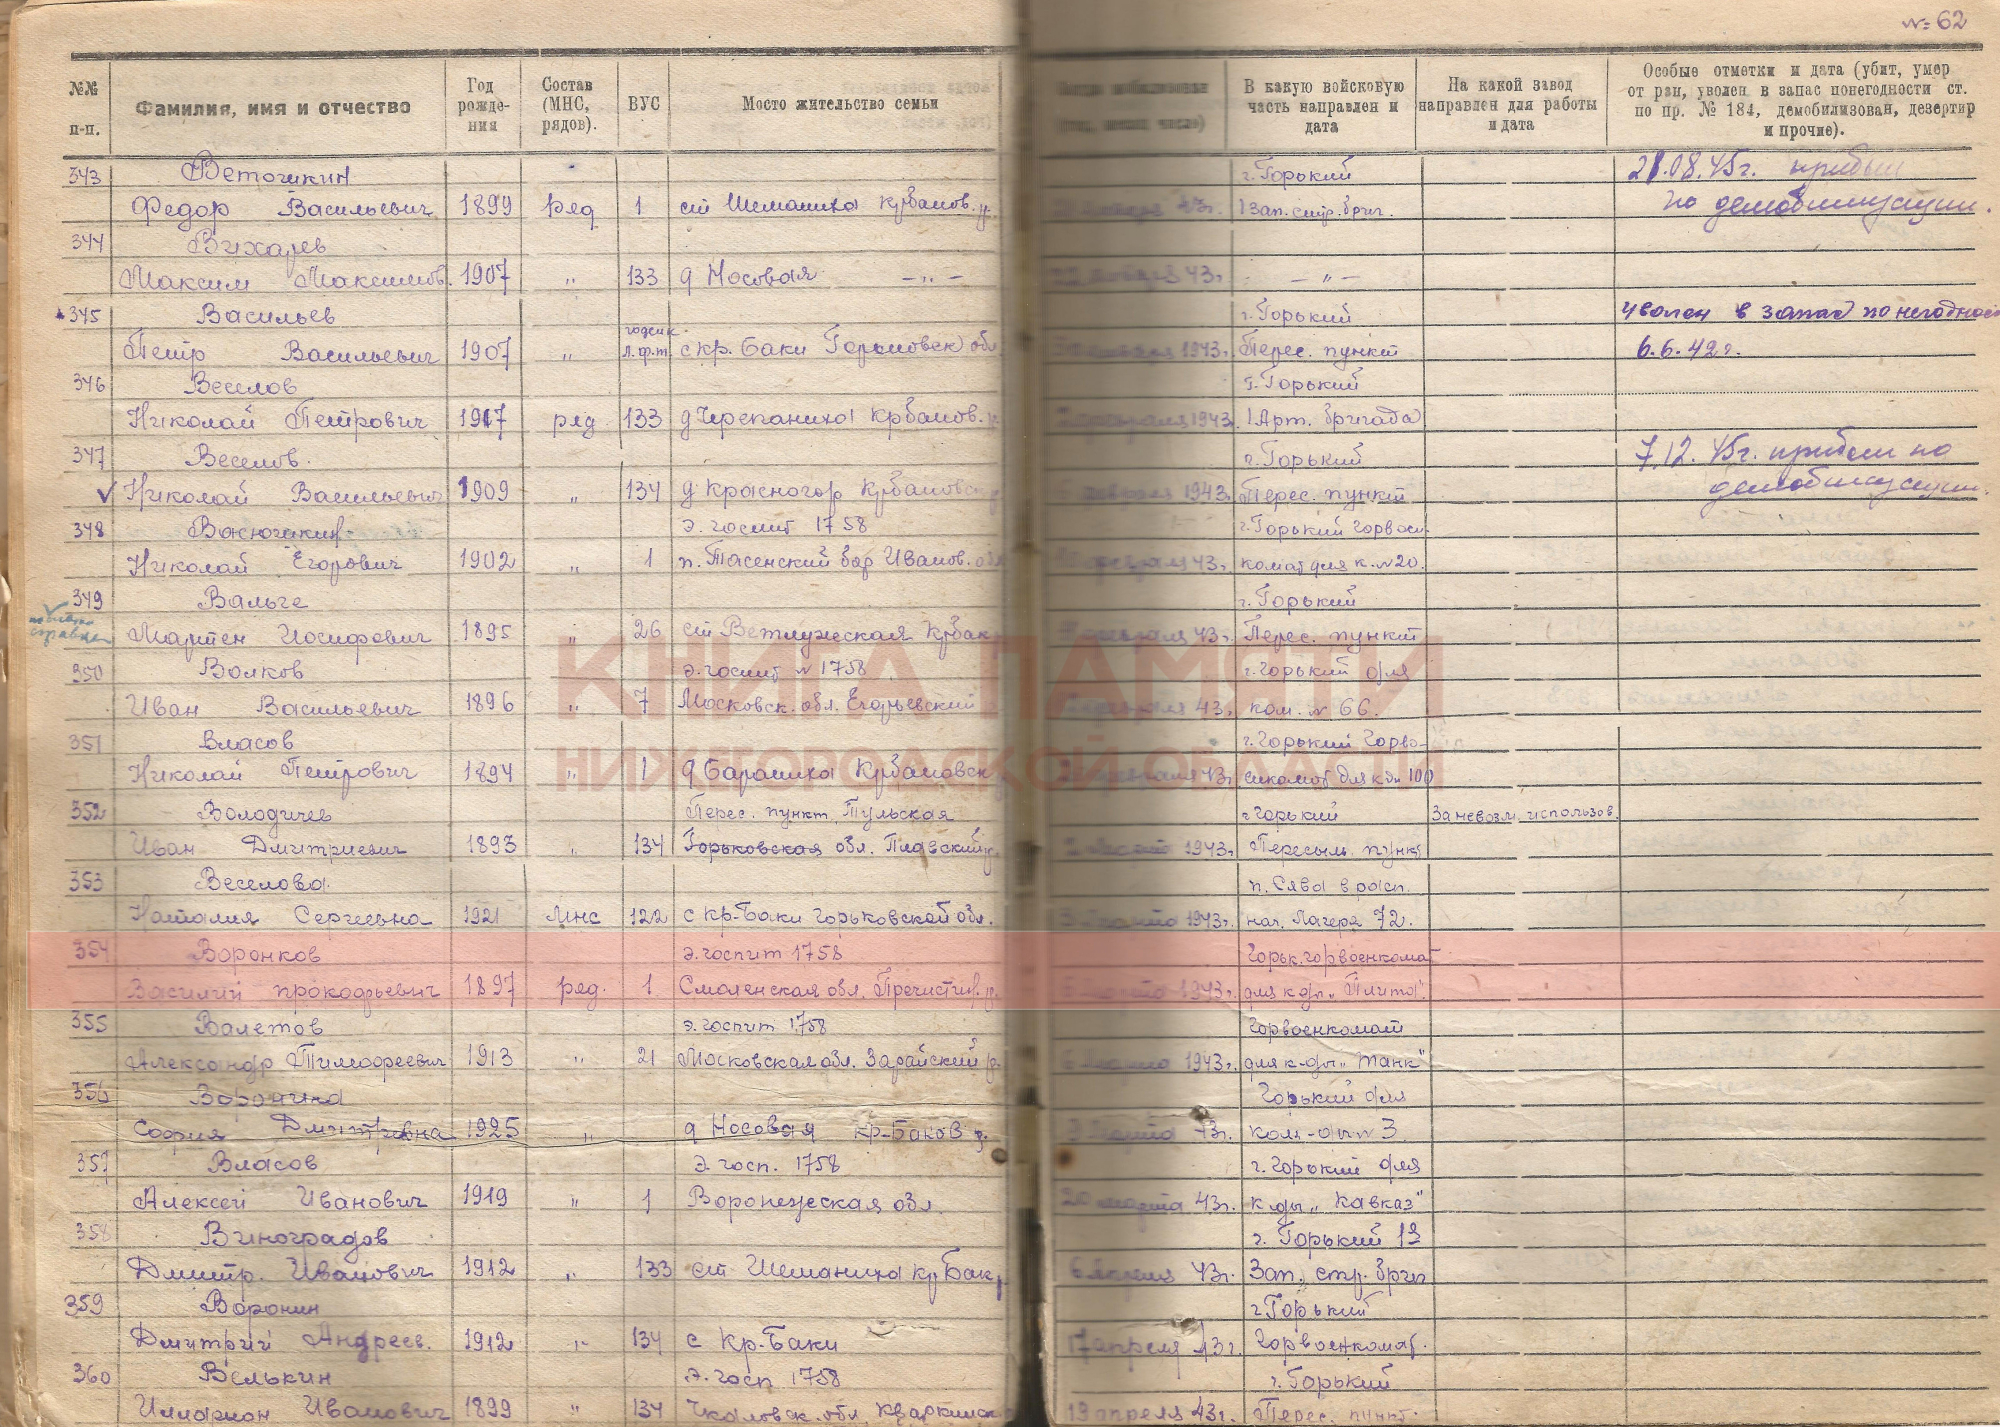 № 62
№№ п-п. Фамилия, имя и отчество Год рожде-ния Состав (МНС, рядов). ВУС Мосто жительство семьи В какую войсковую часть направлен и дата На какой завод направлен для работы и дата Особые отметки и дата (убит, умер от ран, уволен в запас понегодности ст. по пр. № 184, демобилизован, дезертир и прочие).
343 Веточкин г. Горький 21.08.45г. прибыл
Федор Васильевич 1899 ряд 1 ст Шеманиха Крбаков. р. 43г. 1 зап. стр. бриг. по демобилизации.
344 Вихарев
Максим Максимов. 1907 „ 133 д Носовая —„— 43г. —„—
345 Васильев г. Горький уволен в запас по негодност
Петр Васильевич 1907 „ с кр. Баки Горьковск обл 1943г. Перес. пункт 6.6.42г.
346 Веселов г. Горький
Николай Петрович 1917 ряд 133 д Черепаниха Крбаков. р 1943 1 Арт. бригада
347 Веселов. г. Горький 7.12.45г. прибыл по
Николай Васильевич 1909 „ 134 д. Красногор Крбаковск 1943г. Перес. пункт демобилизации.
348 Васючкин э. госпит 1758 г. Горький горвоен.
Николай Егорович 1902 „ 1 Иванов. обл 43г. комат для к. №20.
349 Вальге г. Горький
Мартен Иосифович 1895 „ 26 ст Ветлужская Крбак 43г. Перес. пункт
350 Волков э. госпит № 1758 г. Горький для
Иван Васильевич 1896 „ 7 Московск. обл. Егорьевский 43г. ком. № 66.
КНИГА ПАМЯТИ
351 Власов г. Горький Горво-
Николай Петрович 1894 „ 1 д Бараниха Крбаковск 43г. енкомат для к-ды 100
НИЖЕГОРОДСКОЙ ОБЛАСТИ
352 Володичев Перес. пункт Тульская г Горький За невозм. использов.
Иван Дмитриевич 1893 „ 134 Горьковская обл. Плавский р. 1943г. Пересыл. пункт
353 Веселова п. Сява в расп.
Наталия Сергеевна 1921 Мнс 122 с кр-Баки Горьковской обл. 3 марта 1943г. нач. Лагеря 72.
354 Воронков э. госпит 1758 Горьк. горвоенкомат
Василий Прокофьевич 1897 ряд. 1 Смоленская обл. Пречистинс. р. 5 марта 1943г. для к-ды „Плита".
355 Валетов э. госпит 1758 Горвоенкомат
Александр Тимофеевич 1913 „ 21 Московская обл. Зарайский р. 6 марта 1943г. для к-ды „Танк"
356 Воронина Горький для
София Дмитревна 1925 „ д Носовая Кр-Баков р. 43г. ком-ды № 3
357 Власов э. госп. 1758 г. Горький для
Алексей Иванович 1919 „ 1 Воронежская обл. 20 марта 43г. к-ды „Кавказ"
358 Виноградов г. Горький 13
Дмитр. Иванович 1912 „ 133 ст Шеманиха кр Бак р 6 апреля 43г. Зап. стр. бриг
359 Воронин г Горький
Дмитрий Андреев. 1912 „ 134 с Кр-Баки 17 апреля 43г. Горвоенкомат.
360 Велькин э. госп 1758 г. Горький
Илларион Иванович 1899 „ 134 Чкаловск. обл. Кваркинск 19 апреля 43г. Перес. пункт.